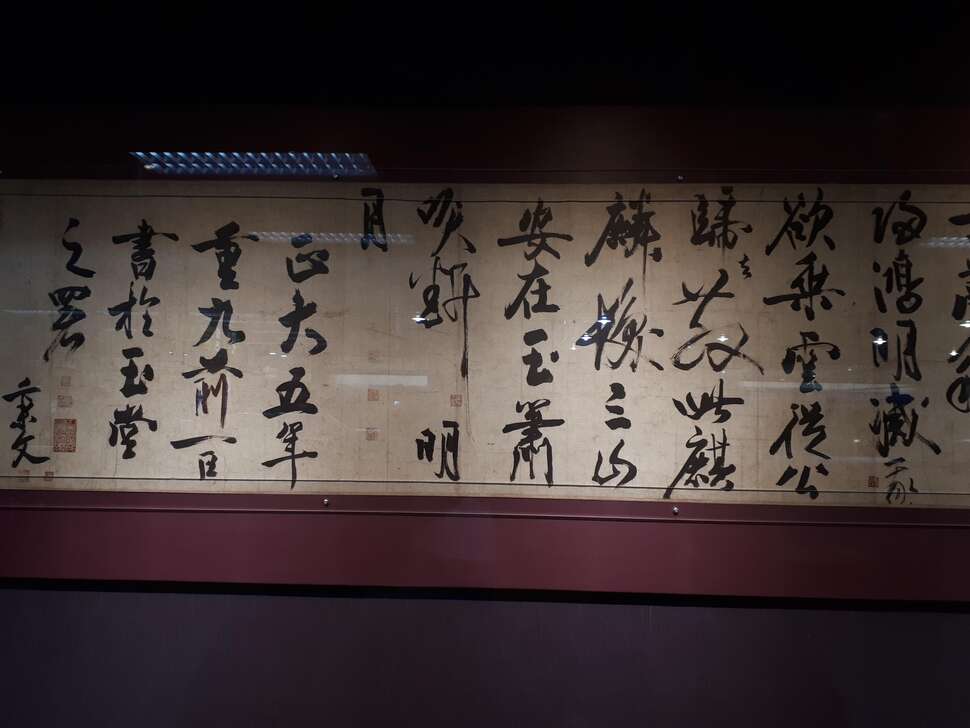 歸鴻明滅我
欲乘雲從公
歸去散此麒
麟髮三山
安在玉簫
吹斷明
月
正大五年
重九前一日
書於玉堂
之署
秉文